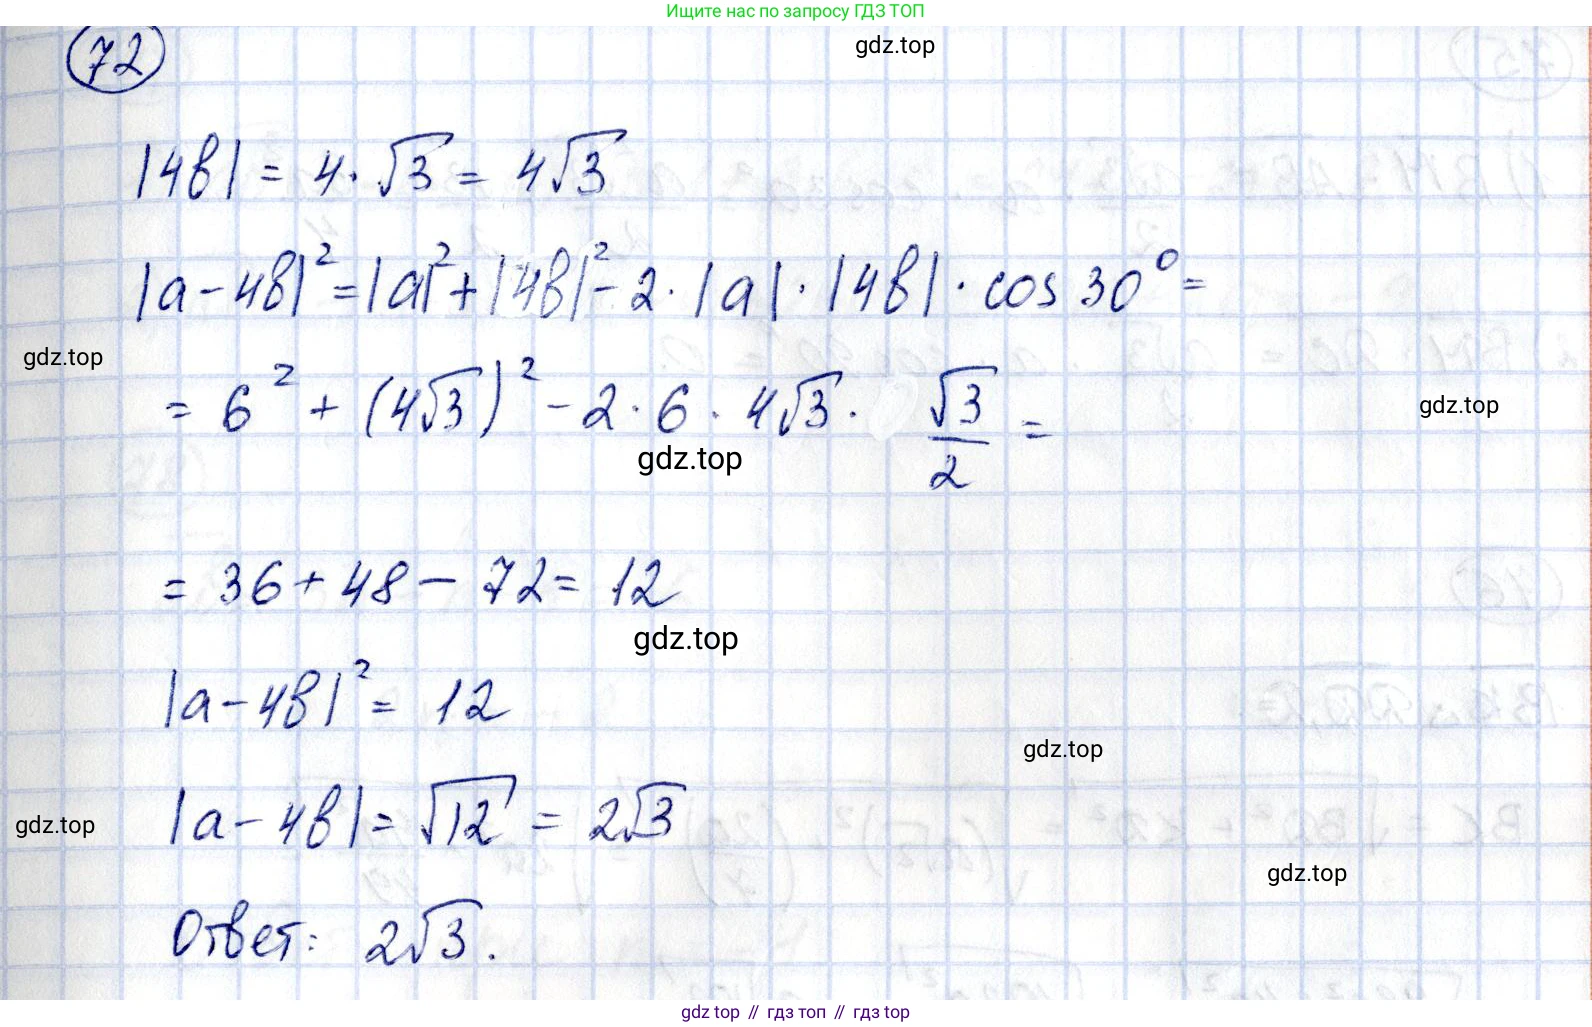 Ищите нас по запросу ГДЗ ТОП
72
gdz.top
|4b| = 4 · √3 = 4√3
|a - 4b|² = |a|² + |4b|² - 2 · |a| · |4b| · cos 30° =
gdz.top
= 6² + (4√3)² - 2 · 6 · 4√3 · √3/2 =
gdz.top
gdz.top
= 36 + 48 - 72 = 12
gdz.top
|a - 4b|² = 12
gdz.top
|a - 4b| = √12 = 2√3
gdz.top
gdz.top
Ответ: 2√3.
gdz.top // гдз топ // гдз.top